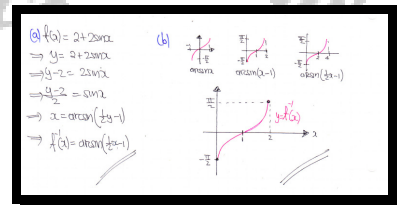 (a) f(x) = 2+2sinx
⇒ y = 2+2sinx
⇒ y-2 = 2sinx
⇒ y-2/2 = sinx
⇒ x = arcsin(½y-1)
⇒ f⁻¹(x) = arcsin(½x-1)
(b)
π/2
-π/2
arcsinx
arcsin(x-1)
arcsin(½x-1)
π/2
y=f⁻¹(x)
1
2
x
-π/2